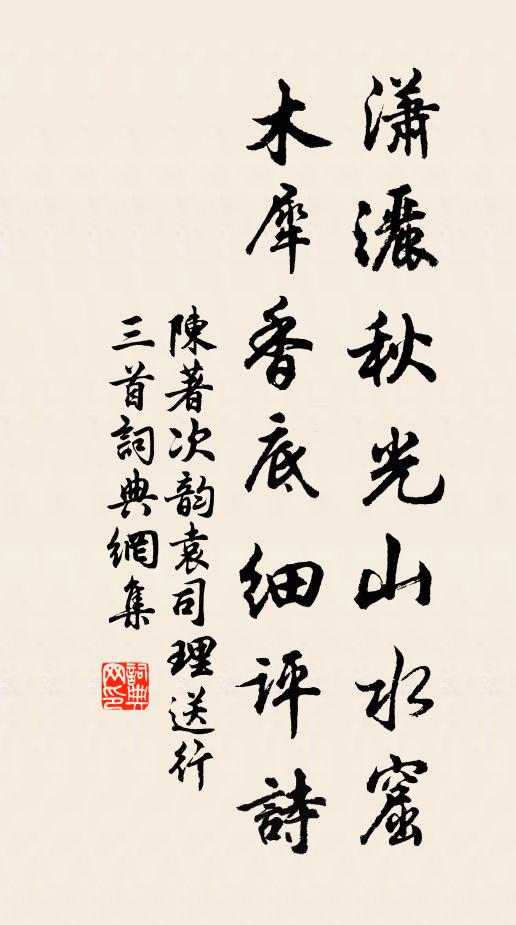 瀟灑秋光山水窟
木犀香底細評詩
陳著次韵袁司理送行
三首詞典網集
詞典
网印